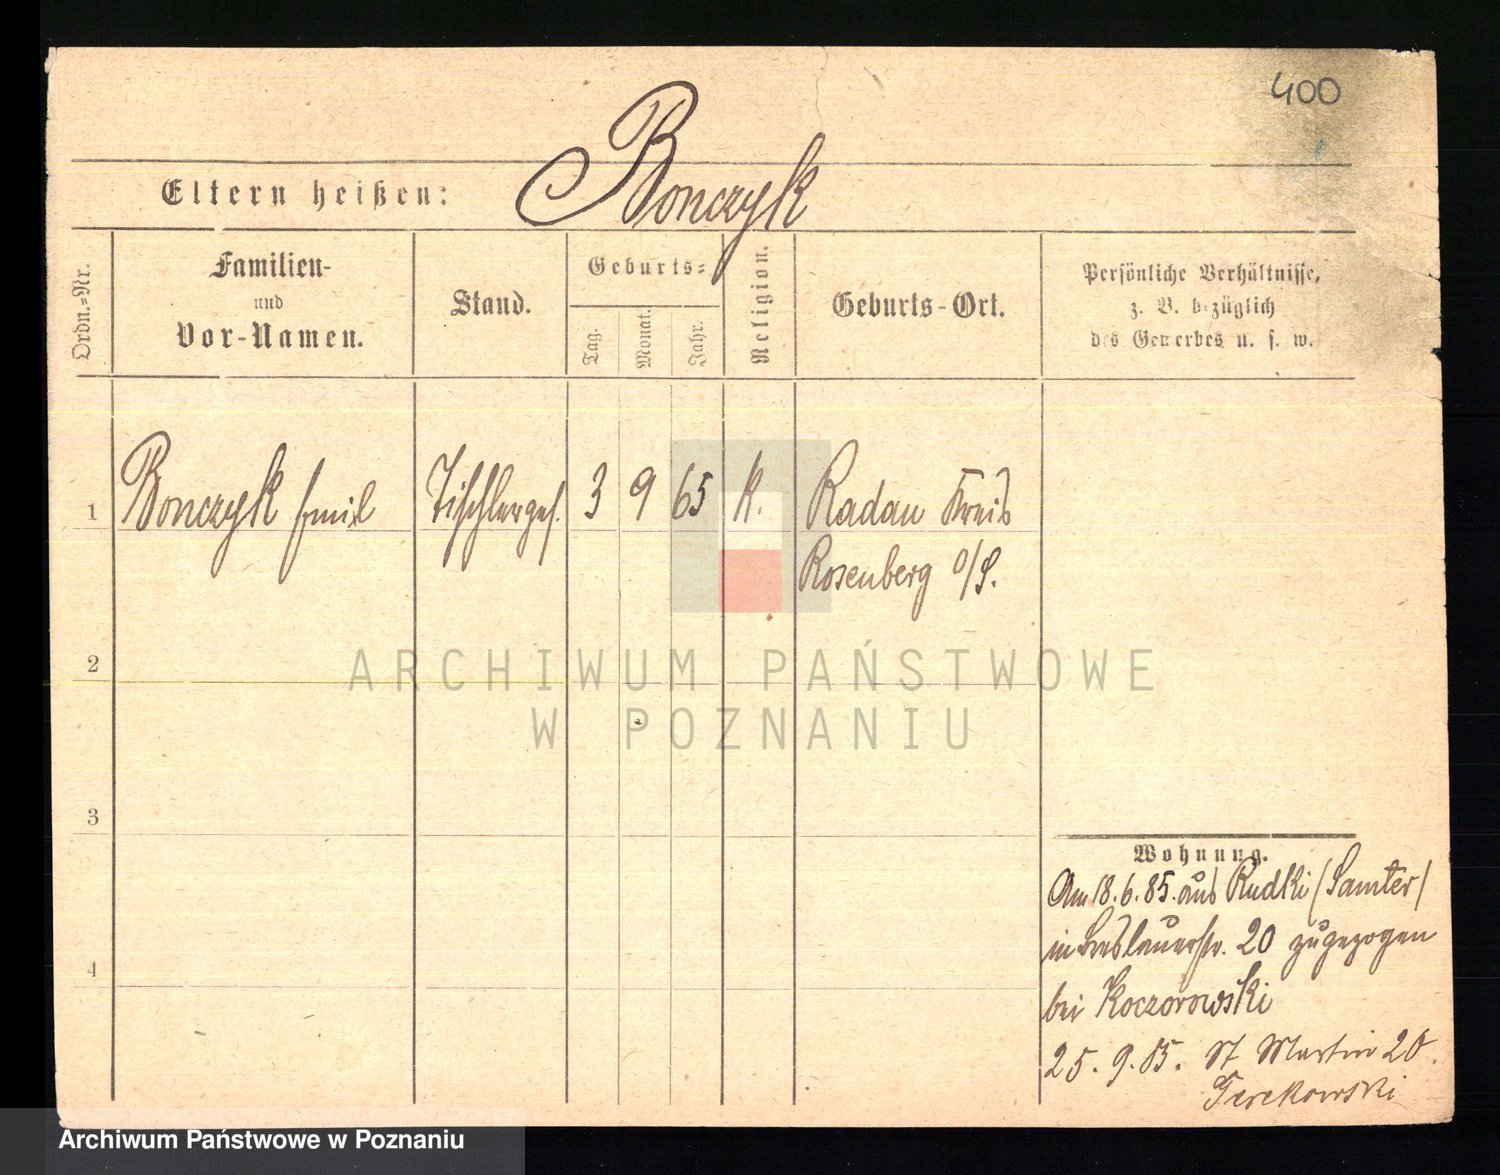 400
Eltern heißen: Bonczyk
Ordn.-Nr.
Familien-
und
Vor-Namen.
Stand.
Geburts-
Tag.
Monat.
Jahr.
Religion.
Geburts-Ort.
Persönliche Verhältnisse,
z. B. bezüglich
des Gewerbes u. s. w.
1 Bonczyk Emil Tischlerges. 3 9 65 K. Radau Kreis
Rosenberg O/S.
2
3
4
Wohnung.
Am 18.6.85. aus Rudki (Samter)
in Breslauerstr. 20 zugezogen
bei Koczorowski
25.9.85. St Martin 20
ARCHIWUM PAŃSTWOWE
W POZNANIU
Archiwum Państwowe w Poznaniu